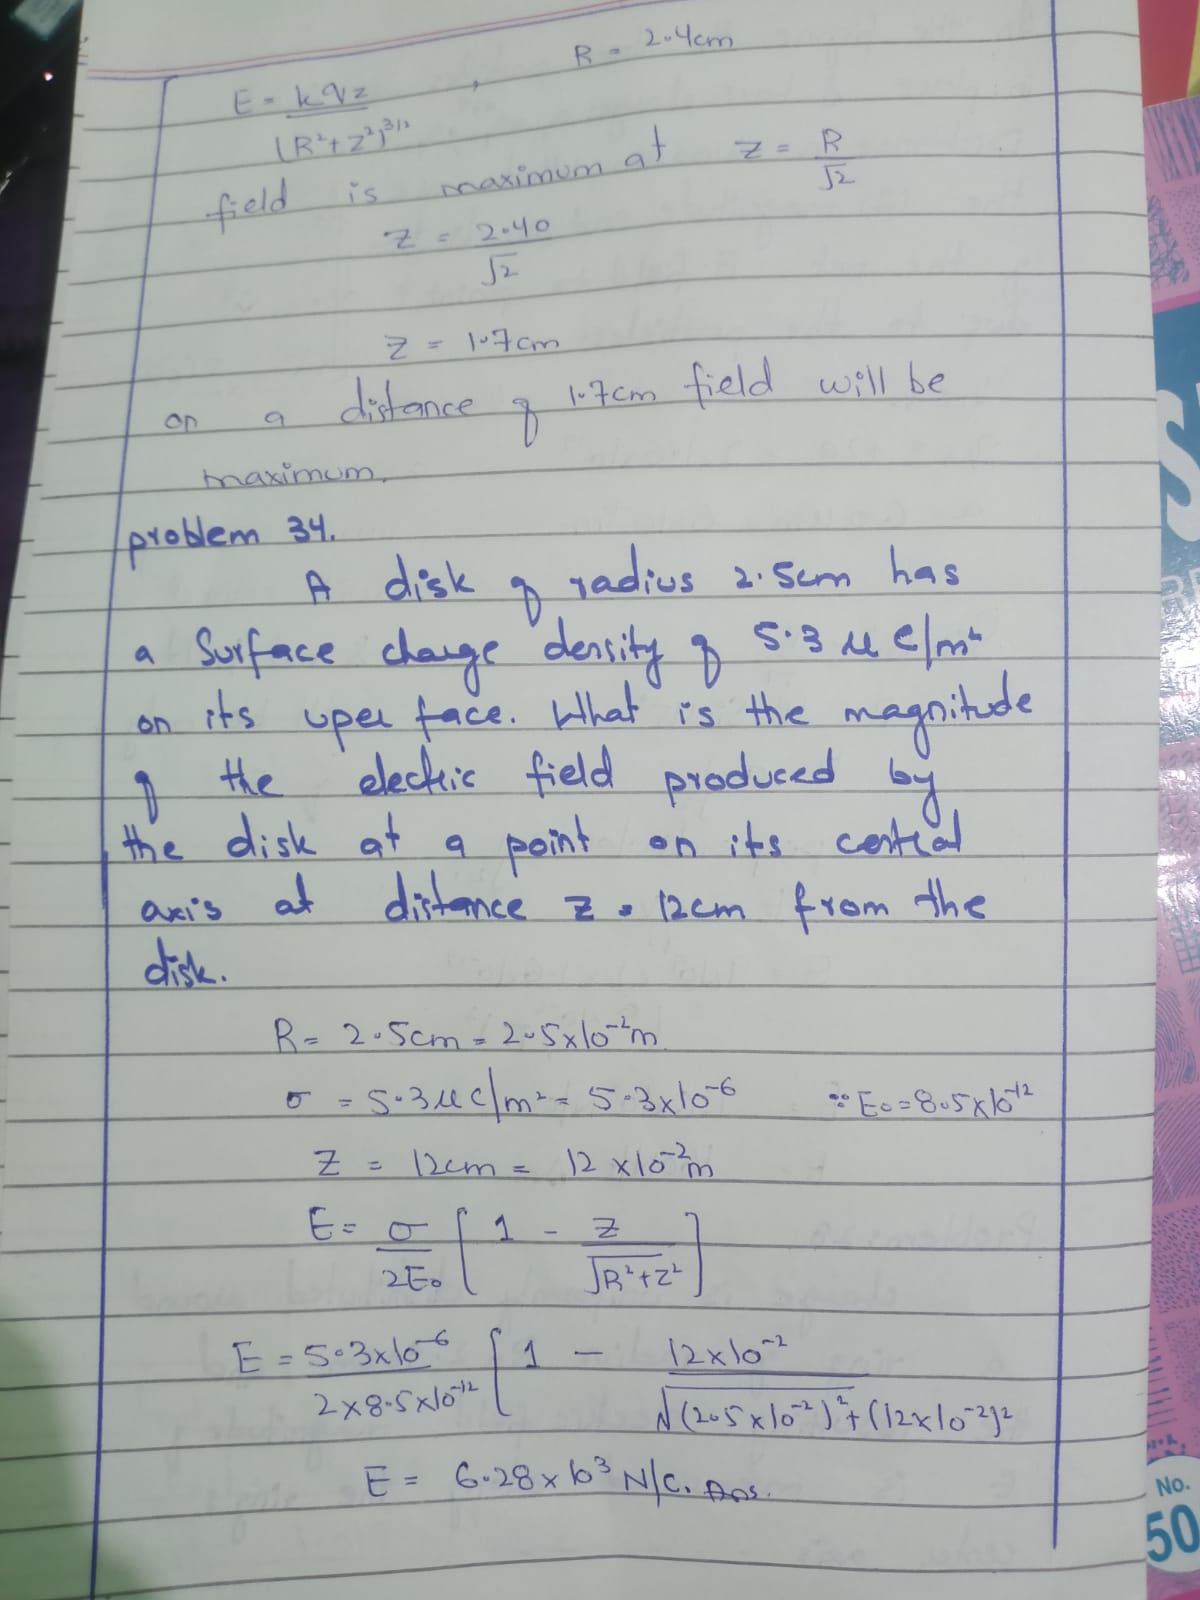 R = 2.4cm
E = kqz / (R²+z²)^3/2 ,
field is maximum at z = R/√2
z = 2.40/√2
z = 1.7cm
on a distance of 1.7cm field will be
maximum.
problem 34.
A disk of radius 2.5cm has
a Surface charge density of 5.3 μC/m²
on its uper face. What is the magnitude
of the electric field produced by
the disk at a point on its central
axis at distance z = 12cm from the
disk.
R = 2.5cm = 2.5x10⁻²m
σ = 5.3μC/m² = 5.3x10⁻⁶ ∵ E₀ = 8.5x10⁻¹²
Z = 12cm = 12 x10⁻²m
E = σ/2E₀ [1 - z/√R²+z²]
E = 5.3x10⁻⁶ / 2x8.5x10⁻¹² [1 - 12x10⁻² / √(2.5x10⁻²)²+(12x10⁻²)²
E = 6.28x10³ N/C. Ans.
No.
50